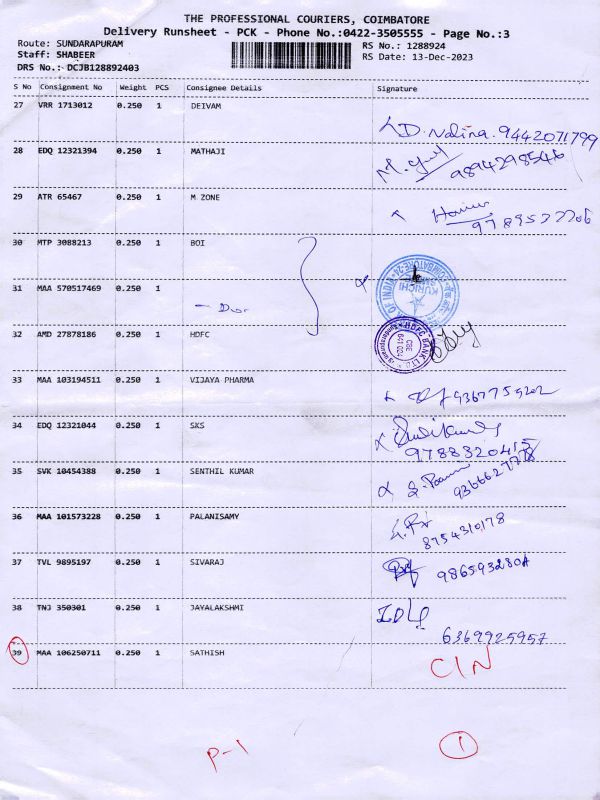 THE PROFESSIONAL COURIERS, COIMBATORE
Delivery Runsheet - PCK - Phone No.:0422-3505555 - Page No.:3
Route: SUNDARAPURAM
RS No.: 1288924
Staff: SHABEER
RS Date: 13-Dec-2023
DRS No.: DCJB128892403
S No Consignment No Weight PCS Consignee Details Signature
27 VRR 1713012 0.250 1 DEIVAM
D. Nalina. 9442071799
28 EDQ 12321394 0.250 1 MATHAJI
9894298546
29 ATR 65467 0.250 1 M ZONE
30 MTP 3088213 0.250 1 BOI
31 MAA 570517469 0.250 1
32 AMD 27878186 0.250 1 HDFC
HDFC BANK LTD
CBE
641 024
33 MAA 103194511 0.250 1 VIJAYA PHARMA
34 EDQ 12321044 0.250 1 SKS
35 SVK 10454388 0.250 1 SENTHIL KUMAR
36 MAA 101573228 0.250 1 PALANISAMY
8754310178
37 TVL 9895197 0.250 1 SIVARAJ
38 TNJ 350301 0.250 1 JAYALAKSHMI
6369925957
39 MAA 106250711 0.250 1 SATHISH
CIN
P-1
1